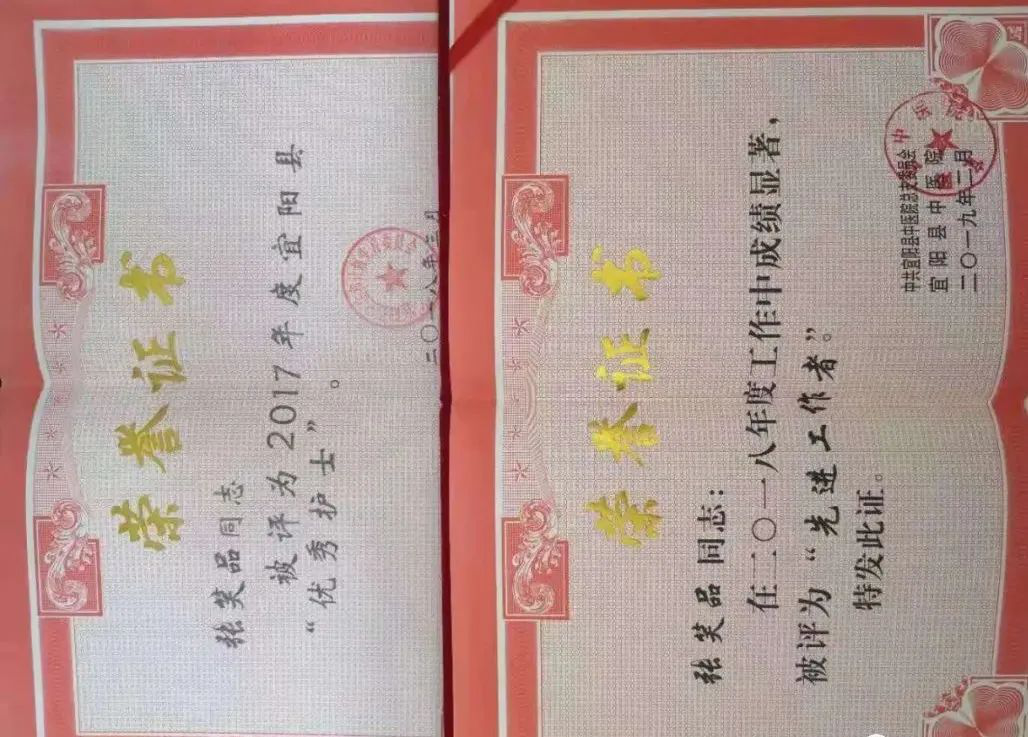 荣誉证书
张笑品同志
被评为2017年度宜阳县
“优秀护士”。
二〇一八年三月
荣誉证书
张笑品同志：
在二〇一八年度工作中成绩显著，
被评为“先进工作者”。
特发此证。
中共宜阳县中医院总支委员会
宜阳县中医院
二〇一九年二月